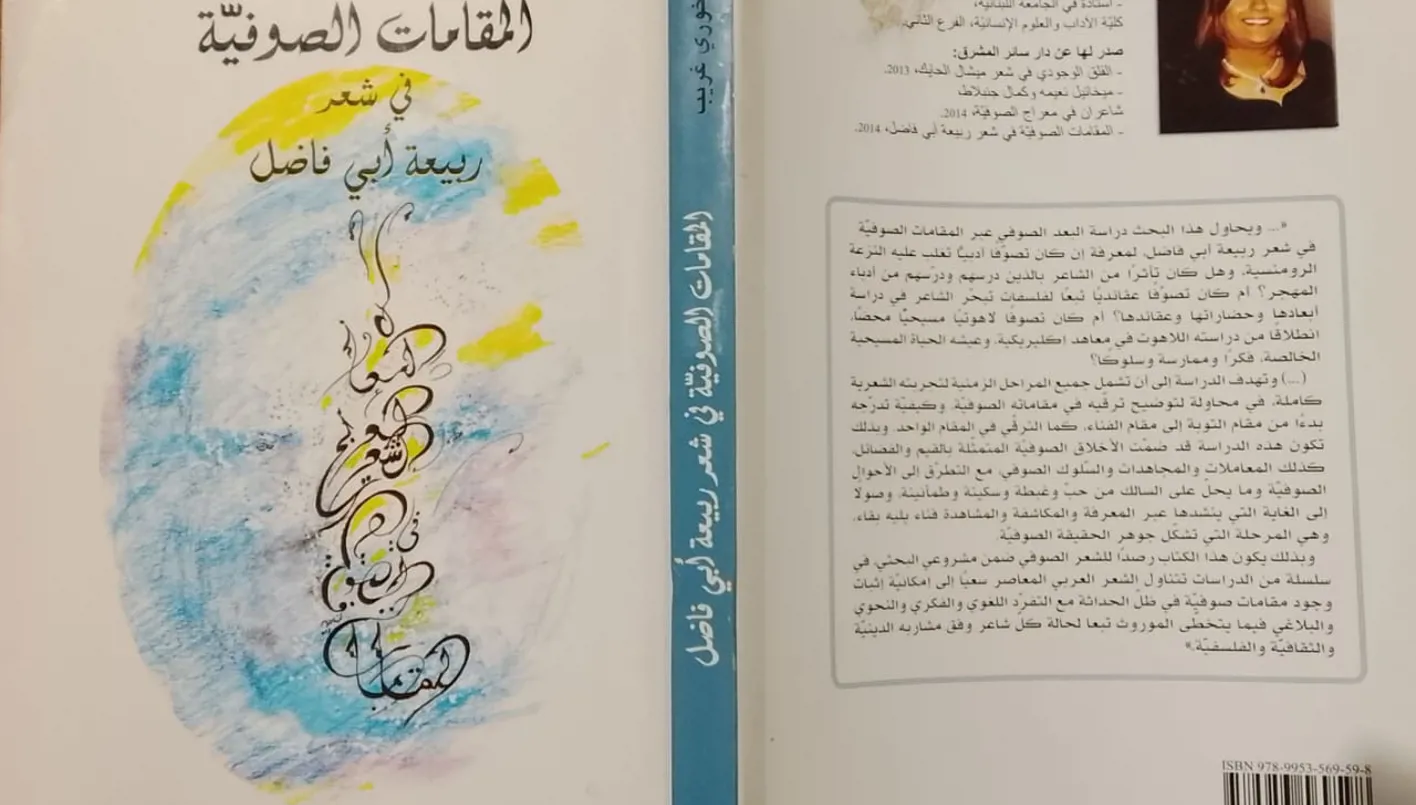 المقامات الصوفيّة
في شعر
ربيعة أبي فاضل
خوري غريب
المقامات الصوفيّة في شعر ربيعة أبي فاضل
- أستاذة في الجامعة اللبنانية،
كليّة الآداب والعلوم الإنسانيّة، الفرع الثاني.
صدر لها عن دار سائر المشرق:
- القلق الوجودي في شعر ميشال الحايك، 2013.
- ميخائيل نعيمه وكمال جنبلاط،
شاعران في معراج الصوفيّة، 2014.
- المقامات الصوفيّة في شعر ربيعة أبي فاضل، 2014.
«... ويحاول هذا البحث دراسة البعد الصوفي عبر المقامات الصوفيّة
في شعر ربيعة أبي فاضل، لمعرفة إن كان تصوّفًا أدبيًّا تغلب عليه النزعة
الرومنسية، وهل كان تأثرًا من الشاعر بالذين درسهم ودرّسهم من أدباء
المهجر؟ أم كان تصوّفًا عقائديًا تبعًا لفلسفات تبحّر الشاعر في دراسة
أبعادها وحضاراتها وعقائدها؟ أم كان تصوفًا لاهوتيًا مسيحيًّا محضًا،
انطلاقًا من دراسته اللاهوت في معاهد إكليريكية، وعيشه الحياة المسيحية
الخالصة، فكرًا وممارسة وسلوكًا؟
(...) وتهدف الدراسة إلى أن تشمل جميع المراحل الزمنية لتجربته الشعرية
كاملة، في محاولة لتوضيح ترقّيه في مقاماته الصوفيّة، وكيفيّة تدرّجه
بدءًا من مقام التوبة إلى مقام الفناء، كما الترقّي في المقام الواحد. وبذلك
تكون هذه الدراسة قد ضمّت الأخلاق الصوفيّة المتمثّلة بالقيم والفضائل،
كذلك المعاملات والمجاهدات والسّلوك الصوفي، مع التطرّق إلى الأحوال
الصوفيّة وما يحلّ على السالك من حبّ وغبطة وسكينة وطمأنينة، وصولًا
إلى الغاية التي ينشدها عبر المعرفة والمكاشفة والمشاهدة فناء يليه بقاء،
وهي المرحلة التي تشكّل جوهر الحقيقة الصوفيّة.
وبذلك يكون هذا الكتاب رصدًا للشعر الصوفي ضمن مشروعي البحثي، في
سلسلة من الدراسات تتناول الشعر العربي المعاصر سعيًا إلى إمكانيّة إثبات
وجود مقامات صوفيّة في ظلّ الحداثة مع التفرّد اللغوي والفكري والنحوي
والبلاغي فيما يتخطى الموروث تبعا لحالة كل شاعر وفق مشاربه الدينيّة
والثقافيّة والفلسفيّة.»
ISBN 978-9953-569-59-8